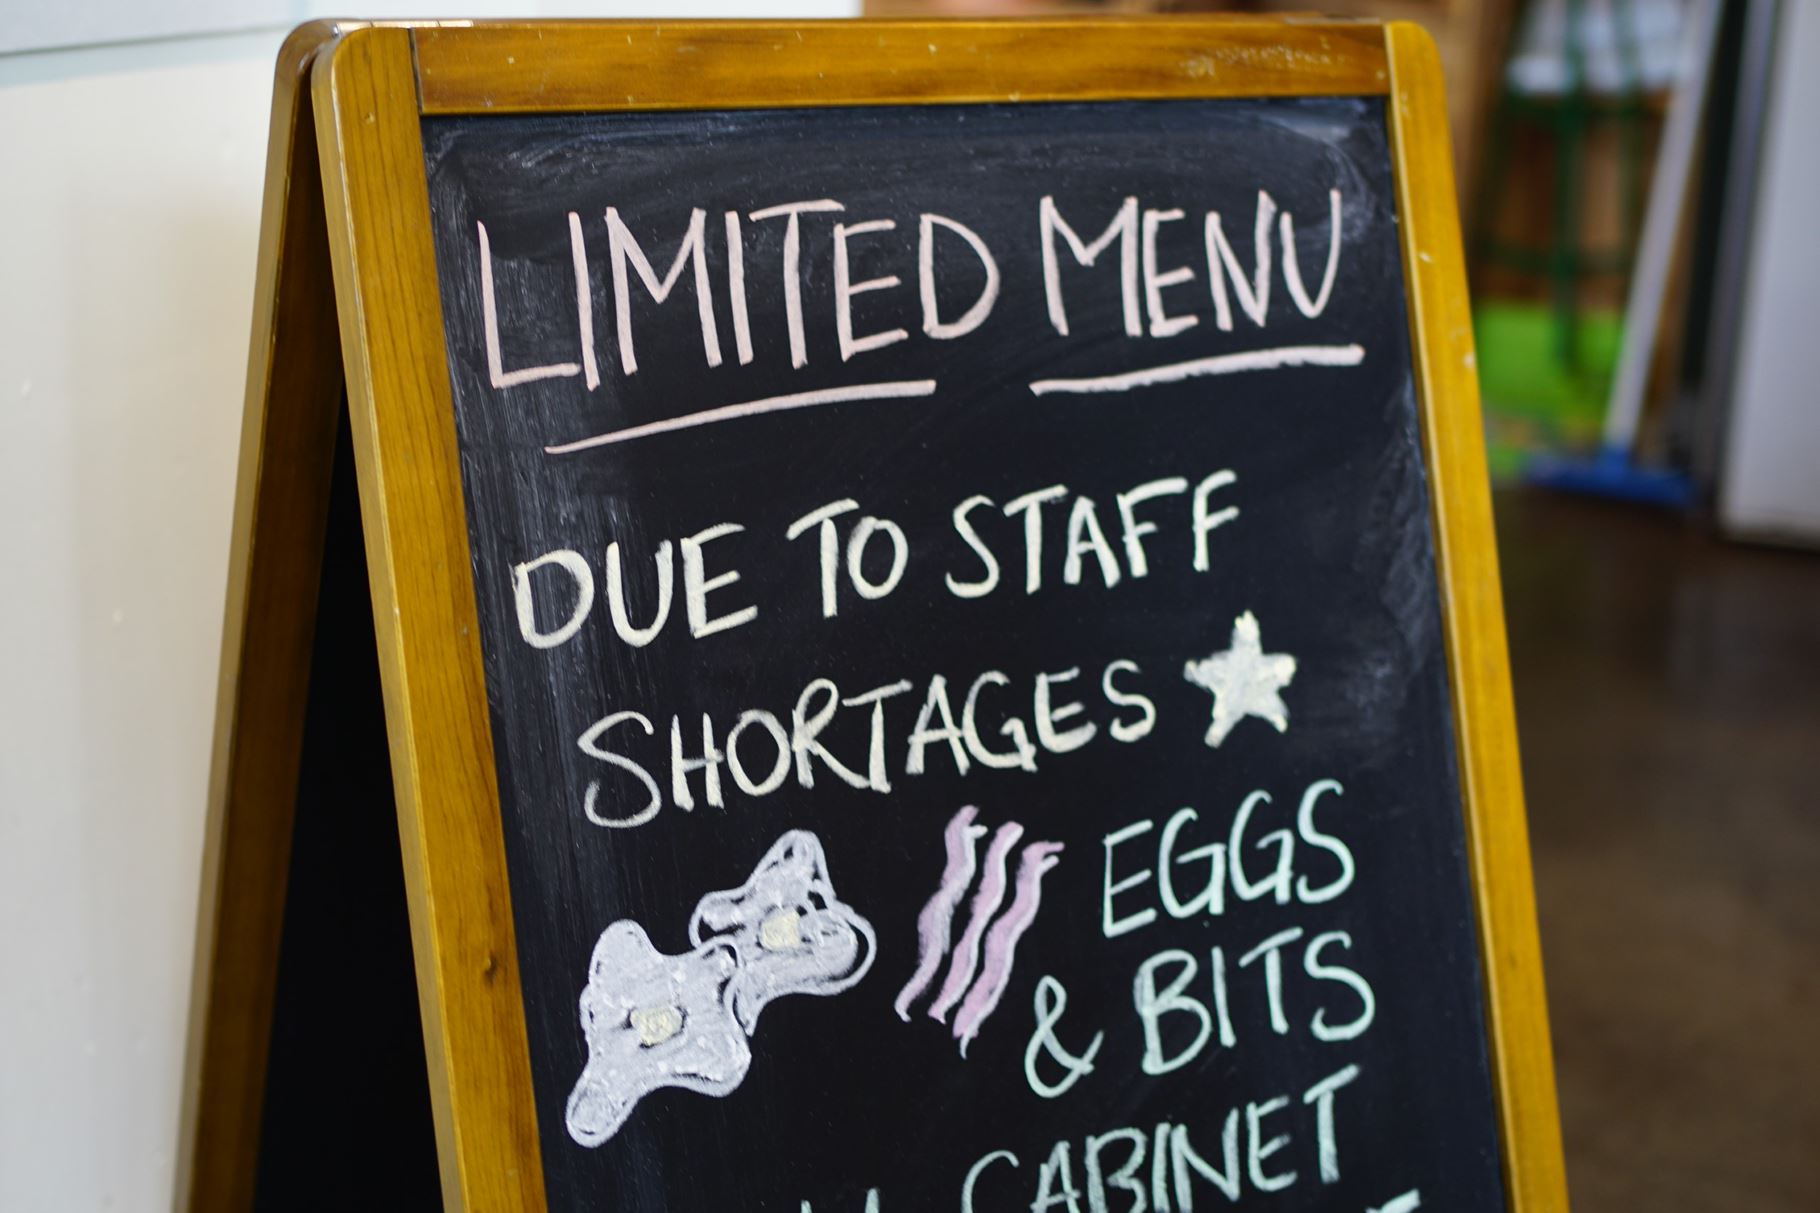 LIMITED MENU
DUE TO STAFF
SHORTAGES
EGGS
& BITS
CABINET